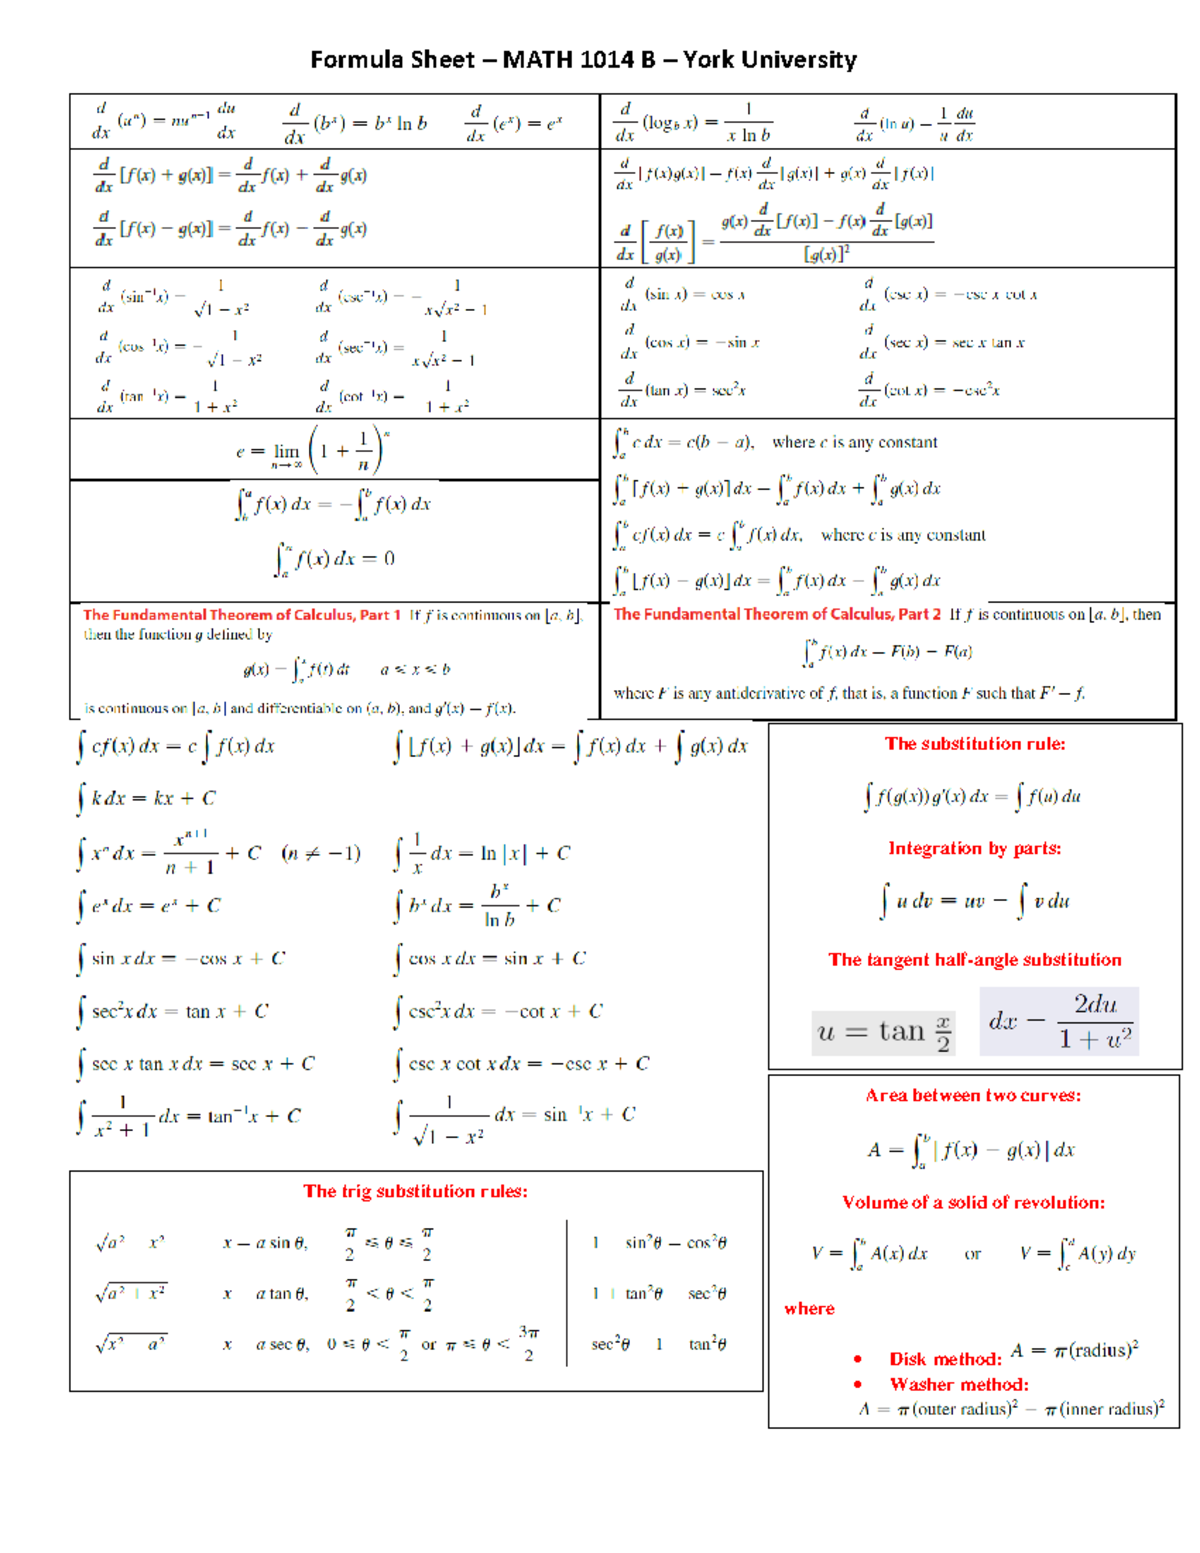 Formula Sheet – MATH 1014 B – York University
d/dx (uⁿ) = nuⁿ⁻¹ du/dx    d/dx (bˣ) = bˣ ln b    d/dx (eˣ) = eˣ
d/dx (log_b x) = 1/(x ln b)    d/dx (ln u) = 1/u du/dx
d/dx [f(x) + g(x)] = d/dx f(x) + d/dx g(x)
d/dx [f(x) − g(x)] = d/dx f(x) − d/dx g(x)
d/dx [f(x)g(x)] = f(x) d/dx [g(x)] + g(x) d/dx [f(x)]
d/dx [f(x)/g(x)] = (g(x) d/dx [f(x)] − f(x) d/dx [g(x)]) / [g(x)]²
d/dx (sin⁻¹x) = 1/√(1 − x²)    d/dx (csc⁻¹x) = − 1/(x√(x² − 1))
d/dx (cos⁻¹x) = − 1/√(1 − x²)    d/dx (sec⁻¹x) = 1/(x√(x² − 1))
d/dx (tan⁻¹x) = 1/(1 + x²)    d/dx (cot⁻¹x) = 1/(1 + x²)
d/dx (sin x) = cos x    d/dx (csc x) = −csc x cot x
d/dx (cos x) = −sin x    d/dx (sec x) = sec x tan x
d/dx (tan x) = sec²x    d/dx (cot x) = −csc²x
e = lim n→∞ (1 + 1/n)ⁿ
∫_b^a f(x) dx = −∫_a^b f(x) dx
∫_a^a f(x) dx = 0
∫_a^b c dx = c(b − a), where c is any constant
∫_a^b [f(x) + g(x)] dx = ∫_a^b f(x) dx + ∫_a^b g(x) dx
∫_a^b cf(x) dx = c ∫_a^b f(x) dx, where c is any constant
∫_a^b [f(x) − g(x)] dx = ∫_a^b f(x) dx − ∫_a^b g(x) dx
The Fundamental Theorem of Calculus, Part 1 If f is continuous on [a, b],
then the function g defined by
g(x) = ∫_a^x f(t) dt    a ≤ x ≤ b
is continuous on [a, b] and differentiable on (a, b), and g′(x) = f(x).
The Fundamental Theorem of Calculus, Part 2 If f is continuous on [a, b], then
∫_a^b f(x) dx = F(b) − F(a)
where F is any antiderivative of f, that is, a function F such that F′ = f.
∫ cf(x) dx = c ∫ f(x) dx    ∫ [f(x) + g(x)] dx = ∫ f(x) dx + ∫ g(x) dx
∫ k dx = kx + C
∫ xⁿ dx = xⁿ⁺¹/(n + 1) + C (n ≠ −1)    ∫ 1/x dx = ln |x| + C
∫ eˣ dx = eˣ + C    ∫ bˣ dx = bˣ/ln b + C
∫ sin x dx = −cos x + C    ∫ cos x dx = sin x + C
∫ sec²x dx = tan x + C    ∫ csc²x dx = −cot x + C
∫ sec x tan x dx = sec x + C    ∫ csc x cot x dx = −csc x + C
∫ 1/(x² + 1) dx = tan⁻¹x + C    ∫ 1/√(1 − x²) dx = sin⁻¹x + C
The substitution rule:
∫ f(g(x)) g′(x) dx = ∫ f(u) du
Integration by parts:
∫ u dv = uv − ∫ v du
The tangent half-angle substitution
u = tan x/2    dx = 2du/(1 + u²)
The trig substitution rules:
√(a² x²)    x = a sin θ,    π/2 ≤ θ ≤ π/2    1 sin²θ = cos²θ
√(a² + x²)    x a tan θ,    π/2 < θ < π/2    1 + tan²θ sec²θ
√(x² a²)    x a sec θ,    0 ≤ θ < π/2 or π ≤ θ < 3π/2    sec²θ 1 tan²θ
Area between two curves:
A = ∫_a^b |f(x) − g(x)| dx
Volume of a solid of revolution:
V = ∫_a^b A(x) dx    or    V = ∫_c^d A(y) dy
where
• Disk method: A = π(radius)²
• Washer method:
A = π(outer radius)² − π(inner radius)²